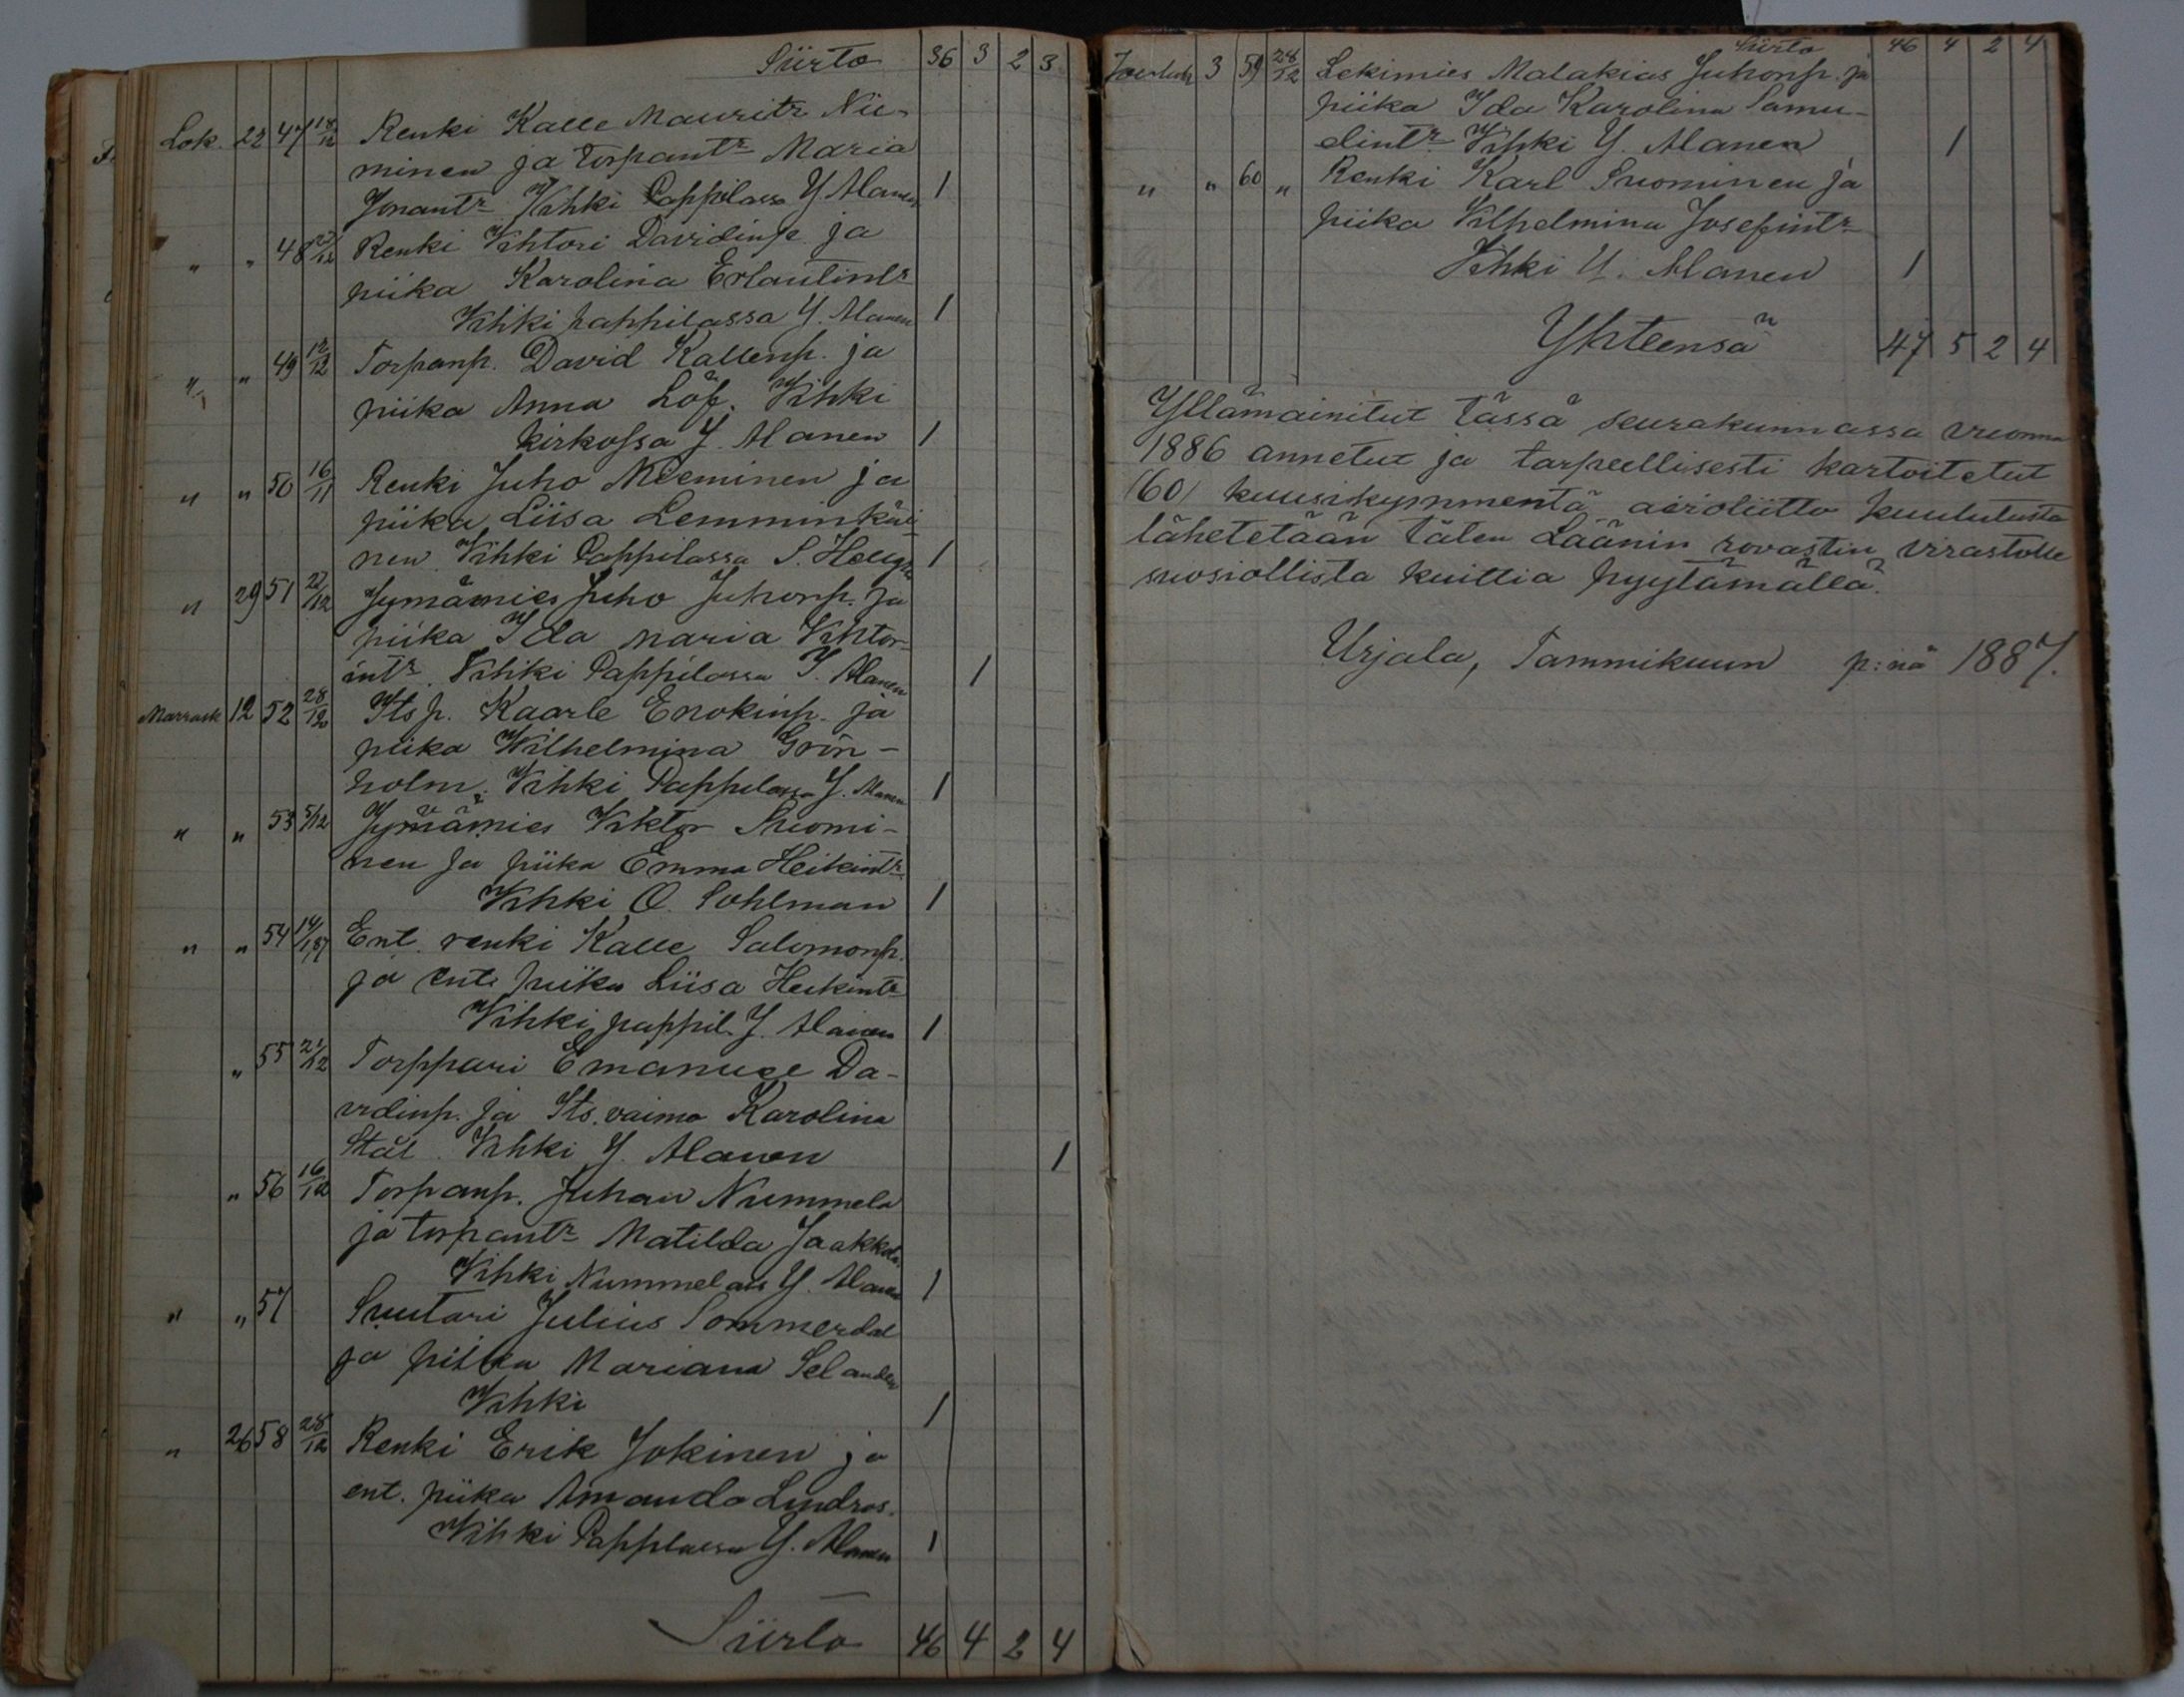 Siirto 36 3 2 3
Lok. 22 47 18/12 Renki Kalle Mauritz Nie-
minen ja torpantr Maria
Jonantr Vihki Pappilassa Y. Alanen 1
" " 48 Renki Vihtori Davidinp. ja
piika Karolina Erlantintr
Vihki pappilassa Y. Alanen 1
" " 49 12/12 Torpanp. David Kallenp. ja
piika Anna Löf. Vihki
kirkossa Y. Alanen 1
" " 50 16/11 Renki Juho Nieminen ja
piika Liisa Lemminkäi-
nen. Vihki Pappilassa S. 1
" 29 51 22/12 Jymämies Juho Juhonp. ja
piika Ida Maria Vihtor-
intr. Vihki Pappilassa Y. Alanen 1
Marrask 12 52 28/12 Itsp. Kaarle Enokinp. ja
piika Wilhelmina Grön-
holm. Vihki Pappilassa Y. Alanen 1
" " 53 5/12 Jymämies Viktor Suomi-
nen ja piika Emma Heikintr.
Vihki O. Sohlman 1
" " 54 14/1 87 Ent. renki Kalle Salomonp.
ja ent. piika Liisa Heikintr
Vihki pappil. Y. Alanen 1
" 55 21/12 Torppari Emanuel Da-
vidinp. ja Its. vaimo Karolina
Stål. Vihki Y. Alanen 1
" 56 16/12 Torpanp. Juhan Nummela
ja torpantr Matilda Jaakkola.
Vihki Nummelass Y. Alanen 1
" " 57 Suutari Julius Sommerdal
ja piika Mariana Selander
Vihki 1
" 26 58 28/12 Renki Erik Jokinen ja
ent. piika Amanda Lindros.
Vihki Pappilassa Y. Alanen 1
Siirto 46 4 2 4
Siirto 46 4 2 4
Jouluk 3 59 28/12 Lekimies Malakias Juhonp. ja
piika Ida Karolina Samu-
elintr Vihki Y. Alanen 1
" " 60 " Renki Karl Suominen ja
piika Vilhelmina Josefintr
Vihki Y. Alanen 1
Yhteensä 47 5 2 4
Yllämainitut tässä seurakunnassa vuonna
1886 annetut ja tarpeellisesti kartoitetut
(60) kuusikymmentä avioliitto kuulutusta
lähetetään tälen Läänin rovastin virastolle
suosiollista kuittia pyytämällä.
Urjala, Tammikuun p:nä 1887.